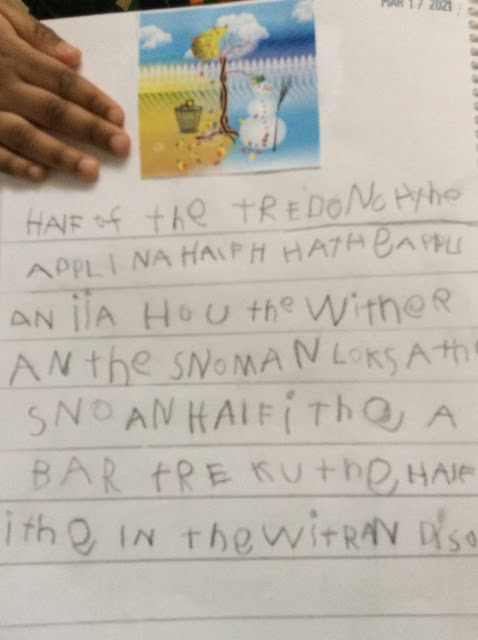 MAR 17 2021
HAlF of the tREDONOHthe
APPLI NA HALPH HATHEAPPLI
AN iiA HOU the WitheR
AN the SNOMAN LOKS A the
SNO AN HAlF i the A
BAR tRE KU the HAlF
ithe IN the WitRAN DiSO